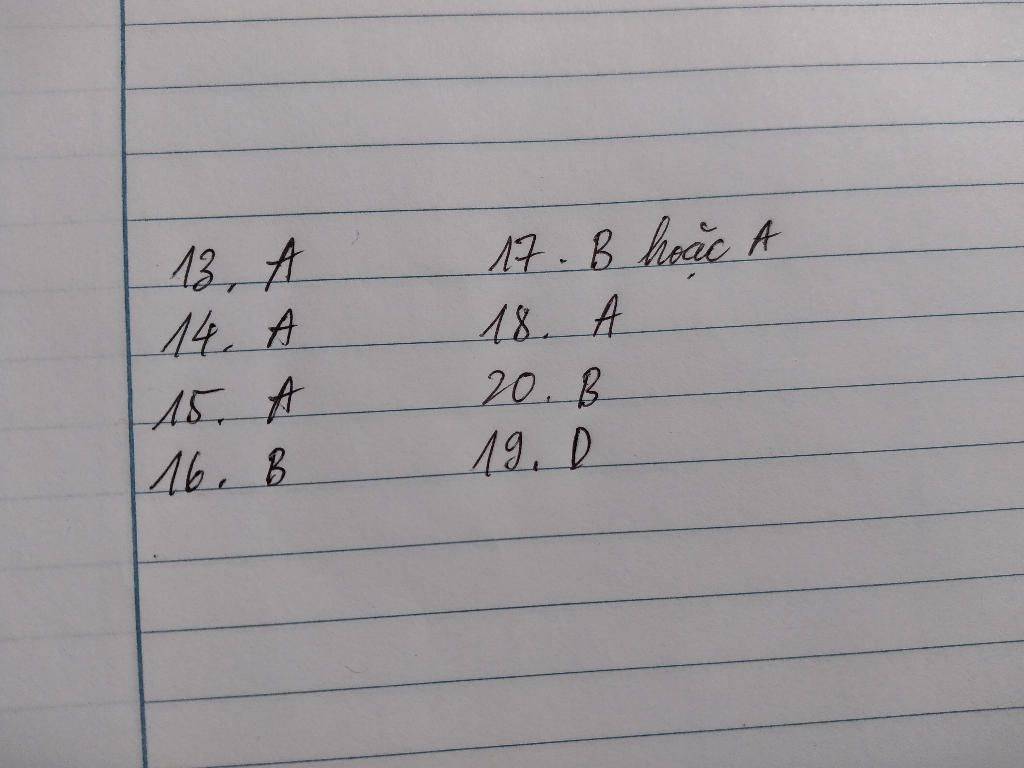 13. A
14. A
15. A
16. B
17. B hoặc A
18. A
20. B
19. D